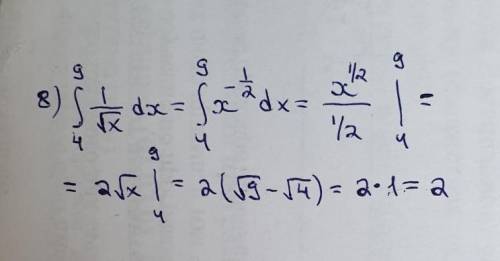 8) ∫₄⁹ 1/√x dx = ∫₄⁹ x^(-1/2) dx = x^(1/2) / (1/2) |₄⁹ =
= 2√x |₄⁹ = 2(√9 - √4) = 2·1 = 2